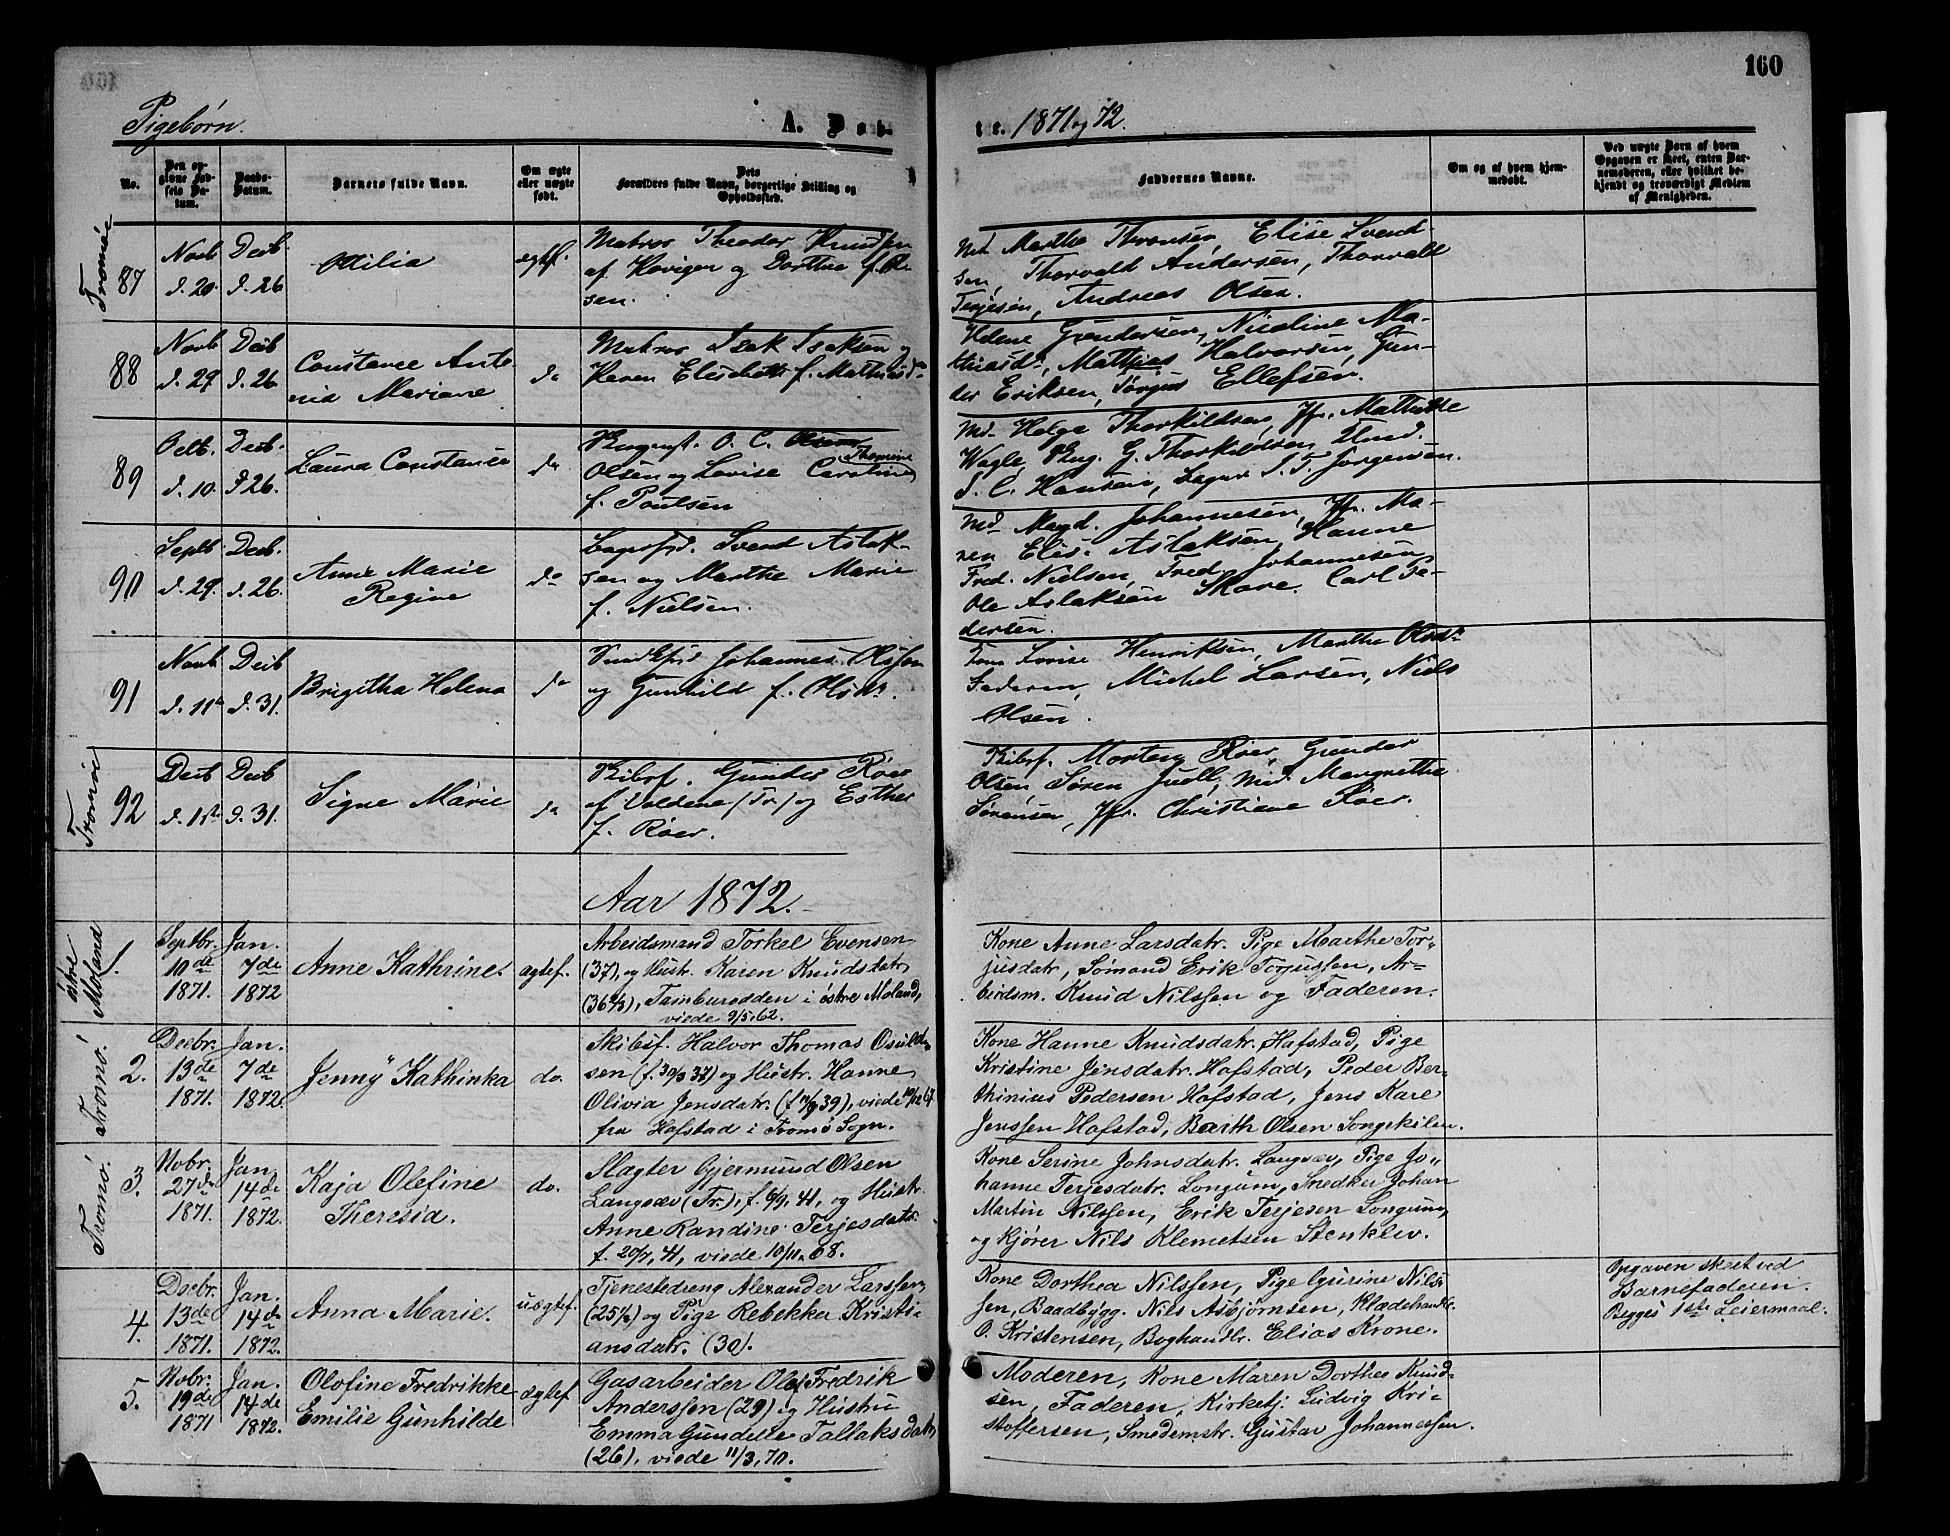 160
Pigebørn.
A. Døb-
te. 1871 og 72.
No.
Den opgivne Fødsels Datum.
Daabs-Datum.
Barnets fulde Navn.
Om ægte eller uægte født.
Dets Forældres fulde Navn, borgerlige Stilling og Opholdssted.
Faddernes Navne.
Om og af hvem hjemmedøbt.
Ved uægte Børn af hvem Opgaven er skeet, enten Barnemoderen, eller hvilket bekjendt og troværdigt Medlem af Menigheden.
Tromøe
87
Novb d. 20.
Decb. d. 26
Otilia
ægtef.
Matros Theodor Knudsen
af Kovigen og Dorthea f. Ol-
sen.
Md. Marthe Thronsen, Elise Svend-
sen, Thorvald Andersen, Thorvald
Terjesen, Andreas Olsen.
88
Novb d. 29
Decb d. 26
Constance Anto
nie Mariane
do
Matros Isak Isaksen og
Karen Elisabeth f. Mathiasd.
Helene Gundersen, Nicoline Ma-
thiasd., Mathias Halvorsen, Gun-
der Eriksen, Jørgen Ellefsen.
89
Octb. d. 10.
Decb. d. 26.
Laura Constance
do
O. C.
Olsen og Lovise Caroline Thomine
f. Poulsen
Md. Helga Thorkildsen, Jfr. Mathilde
Wagle, G. Thorkildsen, Stud.
S. C. Hansen, S. T. Jørgensen.
90
Septb d. 29.
Decb. d. 26.
Anne Marie
Regine
do
Svend Aslak-
sen og Marthe Marie
f. Nielsen.
Md. Magd. Johannesen, Jfr. Ma-
ren Elis. Aslaksen, Hanne
Fred. Nielsen, Fred. Johannesen
Ole Aslaksen Skare. Carl Pe-
dersen.
91
Novb d. 11te
Decb d. 31.
Brigitha Helena
do
Johannes Olssen
og Gunhild f. Olsd.
Lovise Henriksen, Marthe Olsd.
Faderen, Michel Larsen, Niels
Olsen.
Tromøe
92
Decb d. 1ste
Decb d. 31.
Signe Marie
do
Skibsf. Gunder Røer
af Voldene (Tr.) og Esther
f. Røer.
Skibsf. Morten Røer, Gunder
Olsen, Søren Juell, Md. Margrethe
Sørensen, Jfr. Christiane Røer.
Aar 1872.
østre Moland
1.
Septbr. 10de 1871.
Jan. 7de 1872
Anne Kathrine.
ægtef.
Arbeidsmand Torkel Evensen
(37), og Hustr. Karen Knudsdatr.
(36 2/3), Tamburodden i østre Moland,
viede 9/5.62.
Kone Anne Larsdatr. Pige Marthe Tor-
jusdatr, Sømand Erik Torjussen, Ar-
beidsm. Knud Nilssen og Faderen.
Tromø.
2.
Decbr. 13de 1871.
Jan. 7de 1872.
Jenny Kathinka
do.
Skibsf. Halvor Thomas Osuld-
sen (f. 30/3 37) og Hustr. Hanne
Olivia Jensdatr. (f. 11/9 39), viede 19/12 67
fra Hofstad i Tromø Sogn.
Kone Hanne Knudsdatr. Hafstad, Pige
Kristine Jensdatr. Hofstad, Peder Ber-
thinius Pedersen Hofstad, Jens Kare
Jenssen Hofstad, Barth Olsen Songekilen.
Tromø.
3.
Nobr. 27de 1871.
Jan 14de 1872.
Kaja Olefine
Theresia.
do.
Slagter Gjermund Olsen
Langsæv (Tr.), f. 6/9, 41, og Hustr.
Anne Randine Terjesdatr.
f. 20/7, 41, viede 10/11, 68.
Kone Serine Johnsdatr. Langsæv, Pige Jo-
hanne Terjesdatr. Longum, Snedker Johan
Martin Nilssen, Erik Terjesen Longum,
og Kjører Nils Klemetsen Stenklev.
4.
Decbr. 13de 1871.
Jan. 14de 1872.
Anna Marie.
uægtef.
Tjenestedreng Alexander Larssen
(25 1/2) og Pige Rebekka Kristi-
ansdatr. (30).
Kone Dorthea Nilssen, Pige Gurine Nils-
sen, Baadbygg. Nils Asbjørnsen, Klædehandlr.
O. Kristensen, Boghandlr. Elias Krone.
Opgaven skeet ved
Barnefaderen.
Begges 1ste Leiermaal.
5.
Nobr. 19de 1871
Jan. 14de 1872.
Olofine Fredrikke
Emilie Gunhilde
ægtef
Gasarbeider Olaf Fredrik
Anderssen (29) og Hustru
Emma Gundelle Tallaksdatr.
(26), viede 11/3, 70.
Moderen, Kone Maren Dorthea Knud-
sen, Faderen, Kirketj. Ludvig Kri-
stoffersen, Smedemstr. Gustav Johannessen.